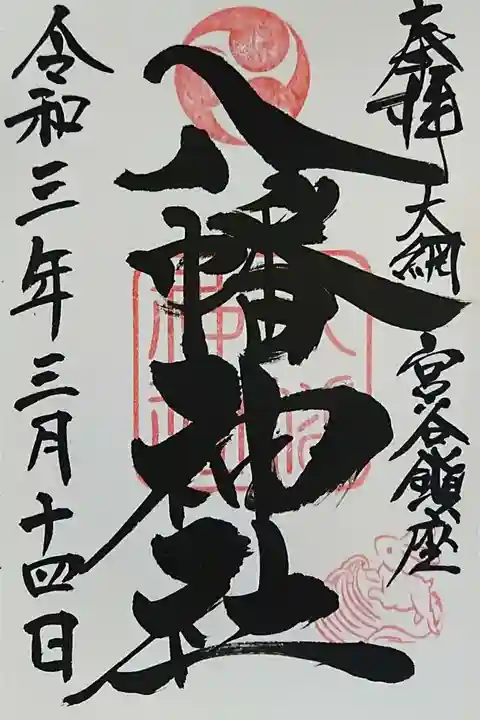 奉拝 大網 宮谷鎮座
八幡神社
令和三年三月十四日